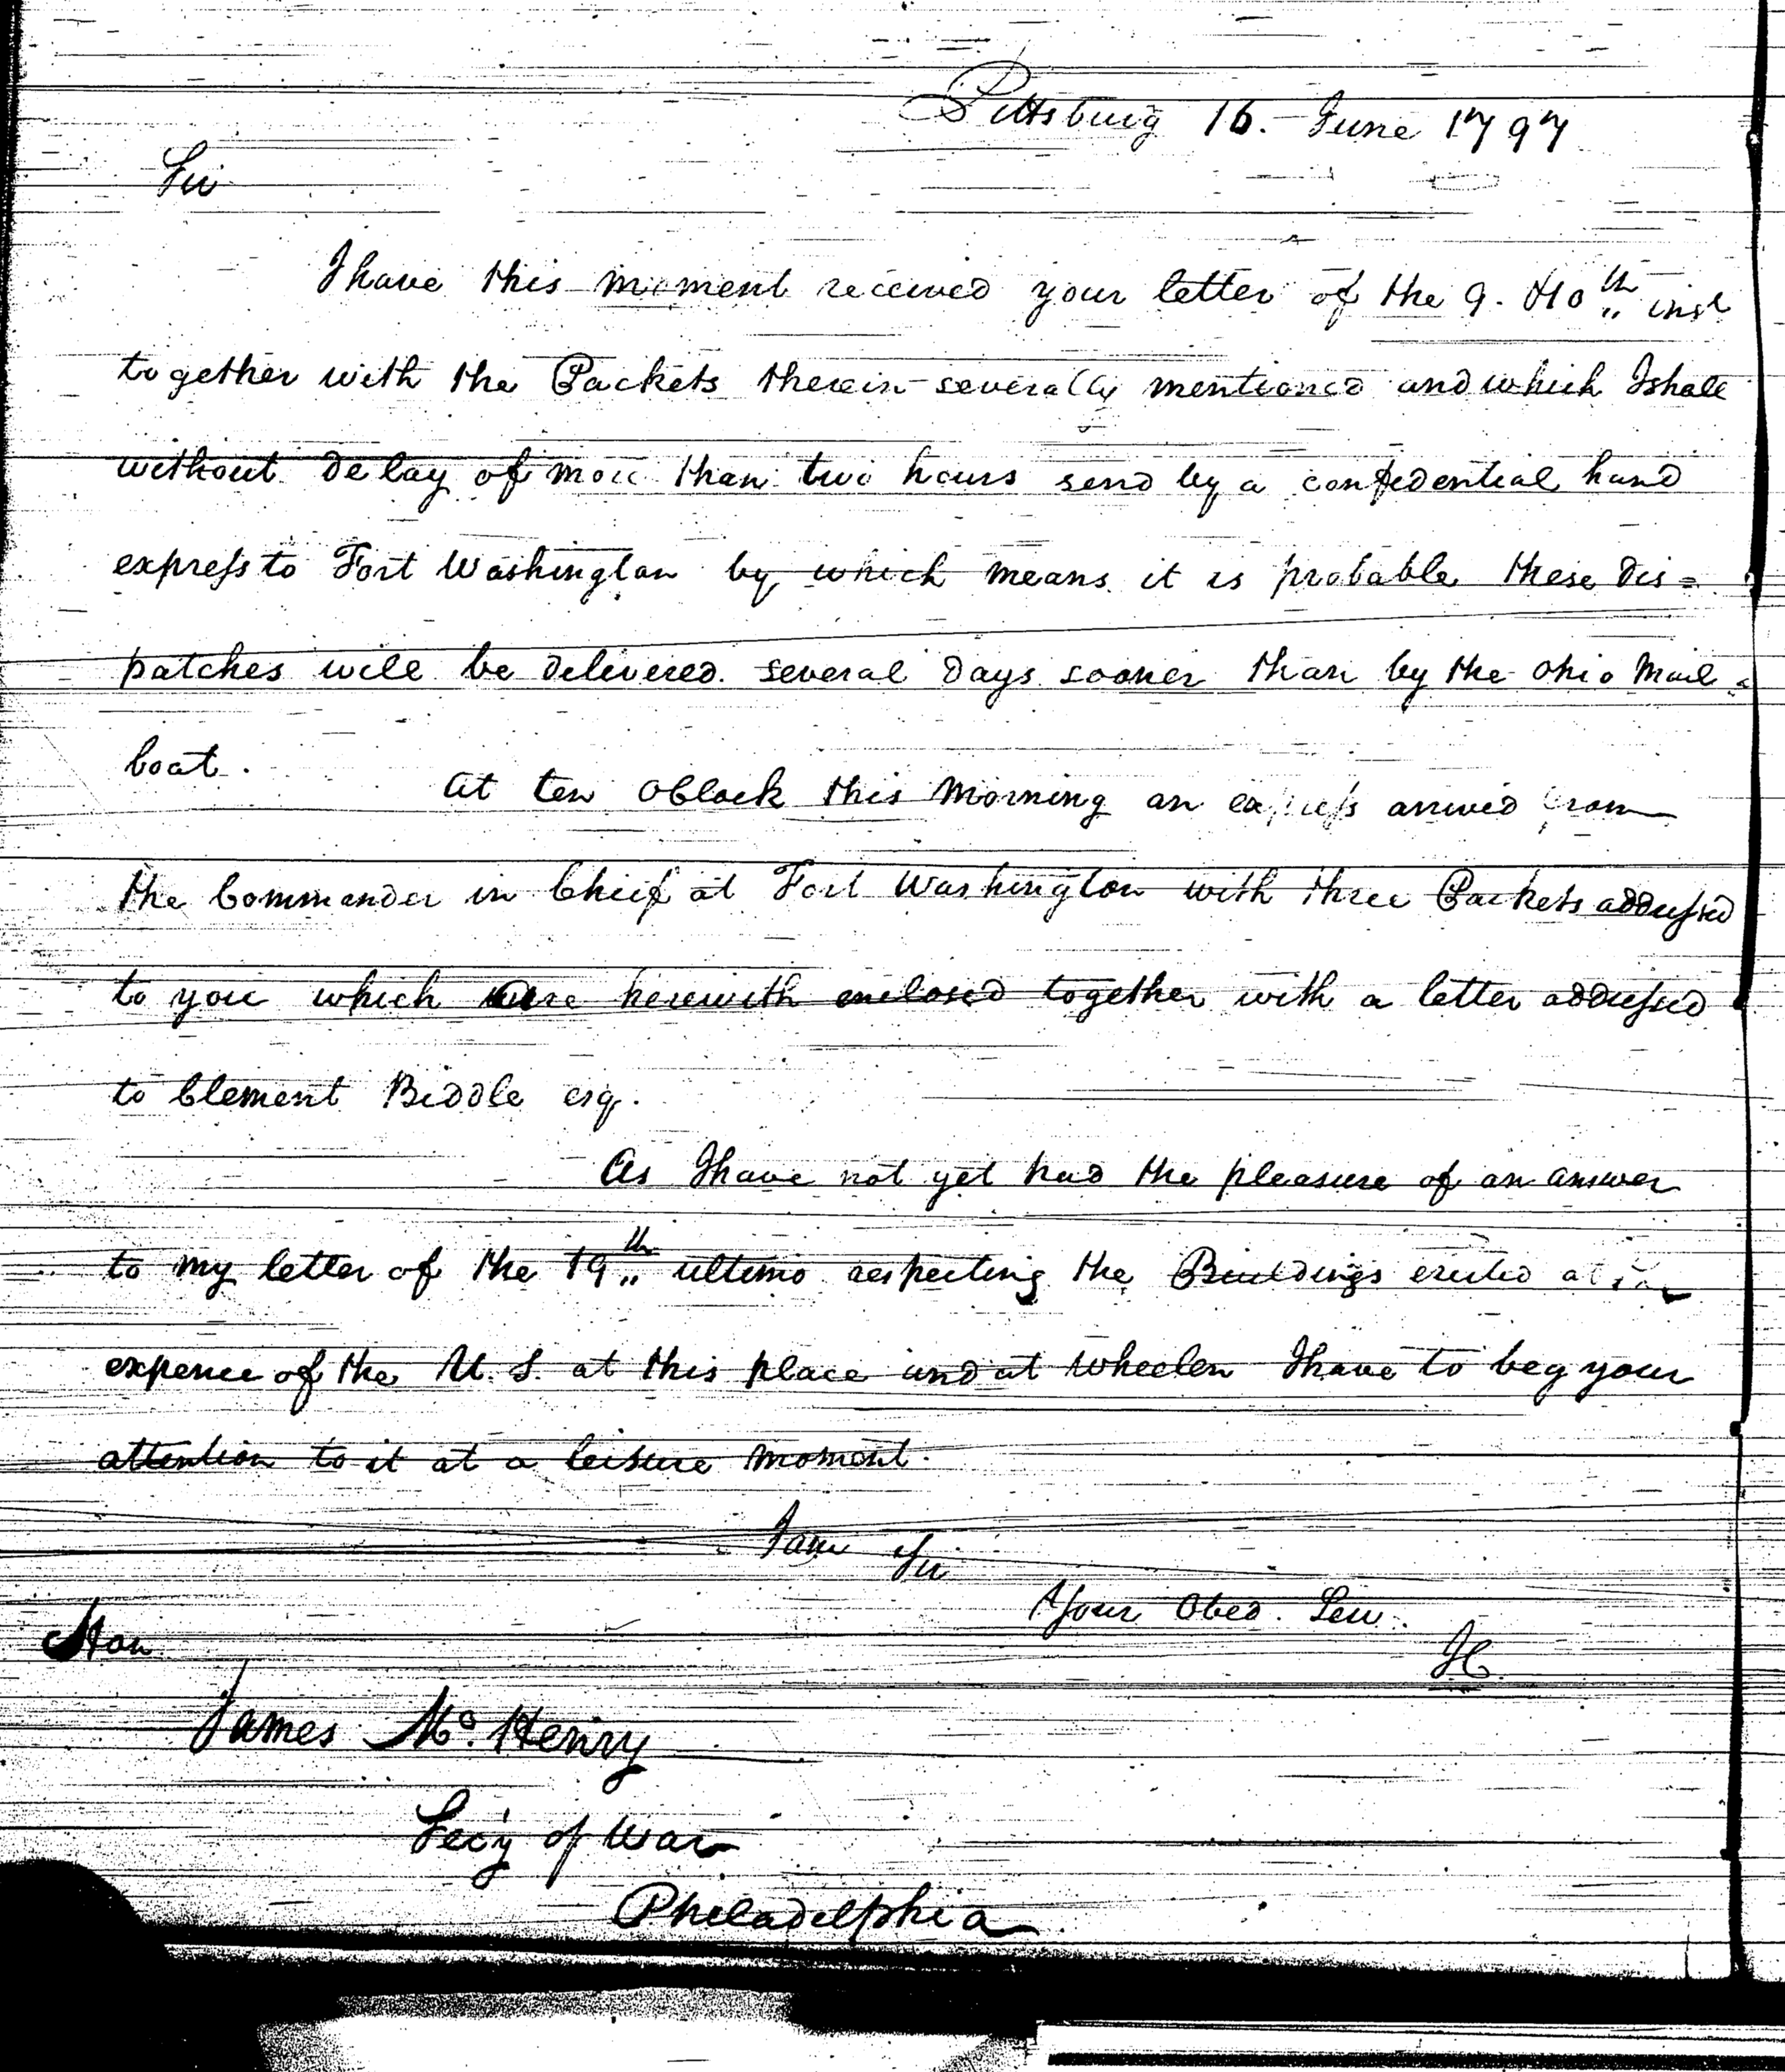 Pittsburg 16. June 1797
Sir
I have this moment received your letter of the 9. & 10th inst
together with the Packets therein severally mentioned and which I shall
without delay of more than two hours send by a confidential hand
express to Fort Washington by which means it is probable these dis=
patches will be delivered several days sooner than by the Ohio Mail=
boat.
At ten OClock this Morning an express arrived from
the Commander in Chief at Fort Washington with three Packets addressed
to you which are herewith enclosed together with a letter addressed
to Clement Biddle esq.
As I have not yet had the pleasure of an answer
to my letter of the 19th ultimo respecting the Buildings erected at the
expence of the U.S. at this place and at Wheelen I have to beg your
attention to it at a leisure moment.
I am Sir
Your Obed. Serv.
IC
Hon
James Mc. Henry
Sec'y of War
Philadelphia